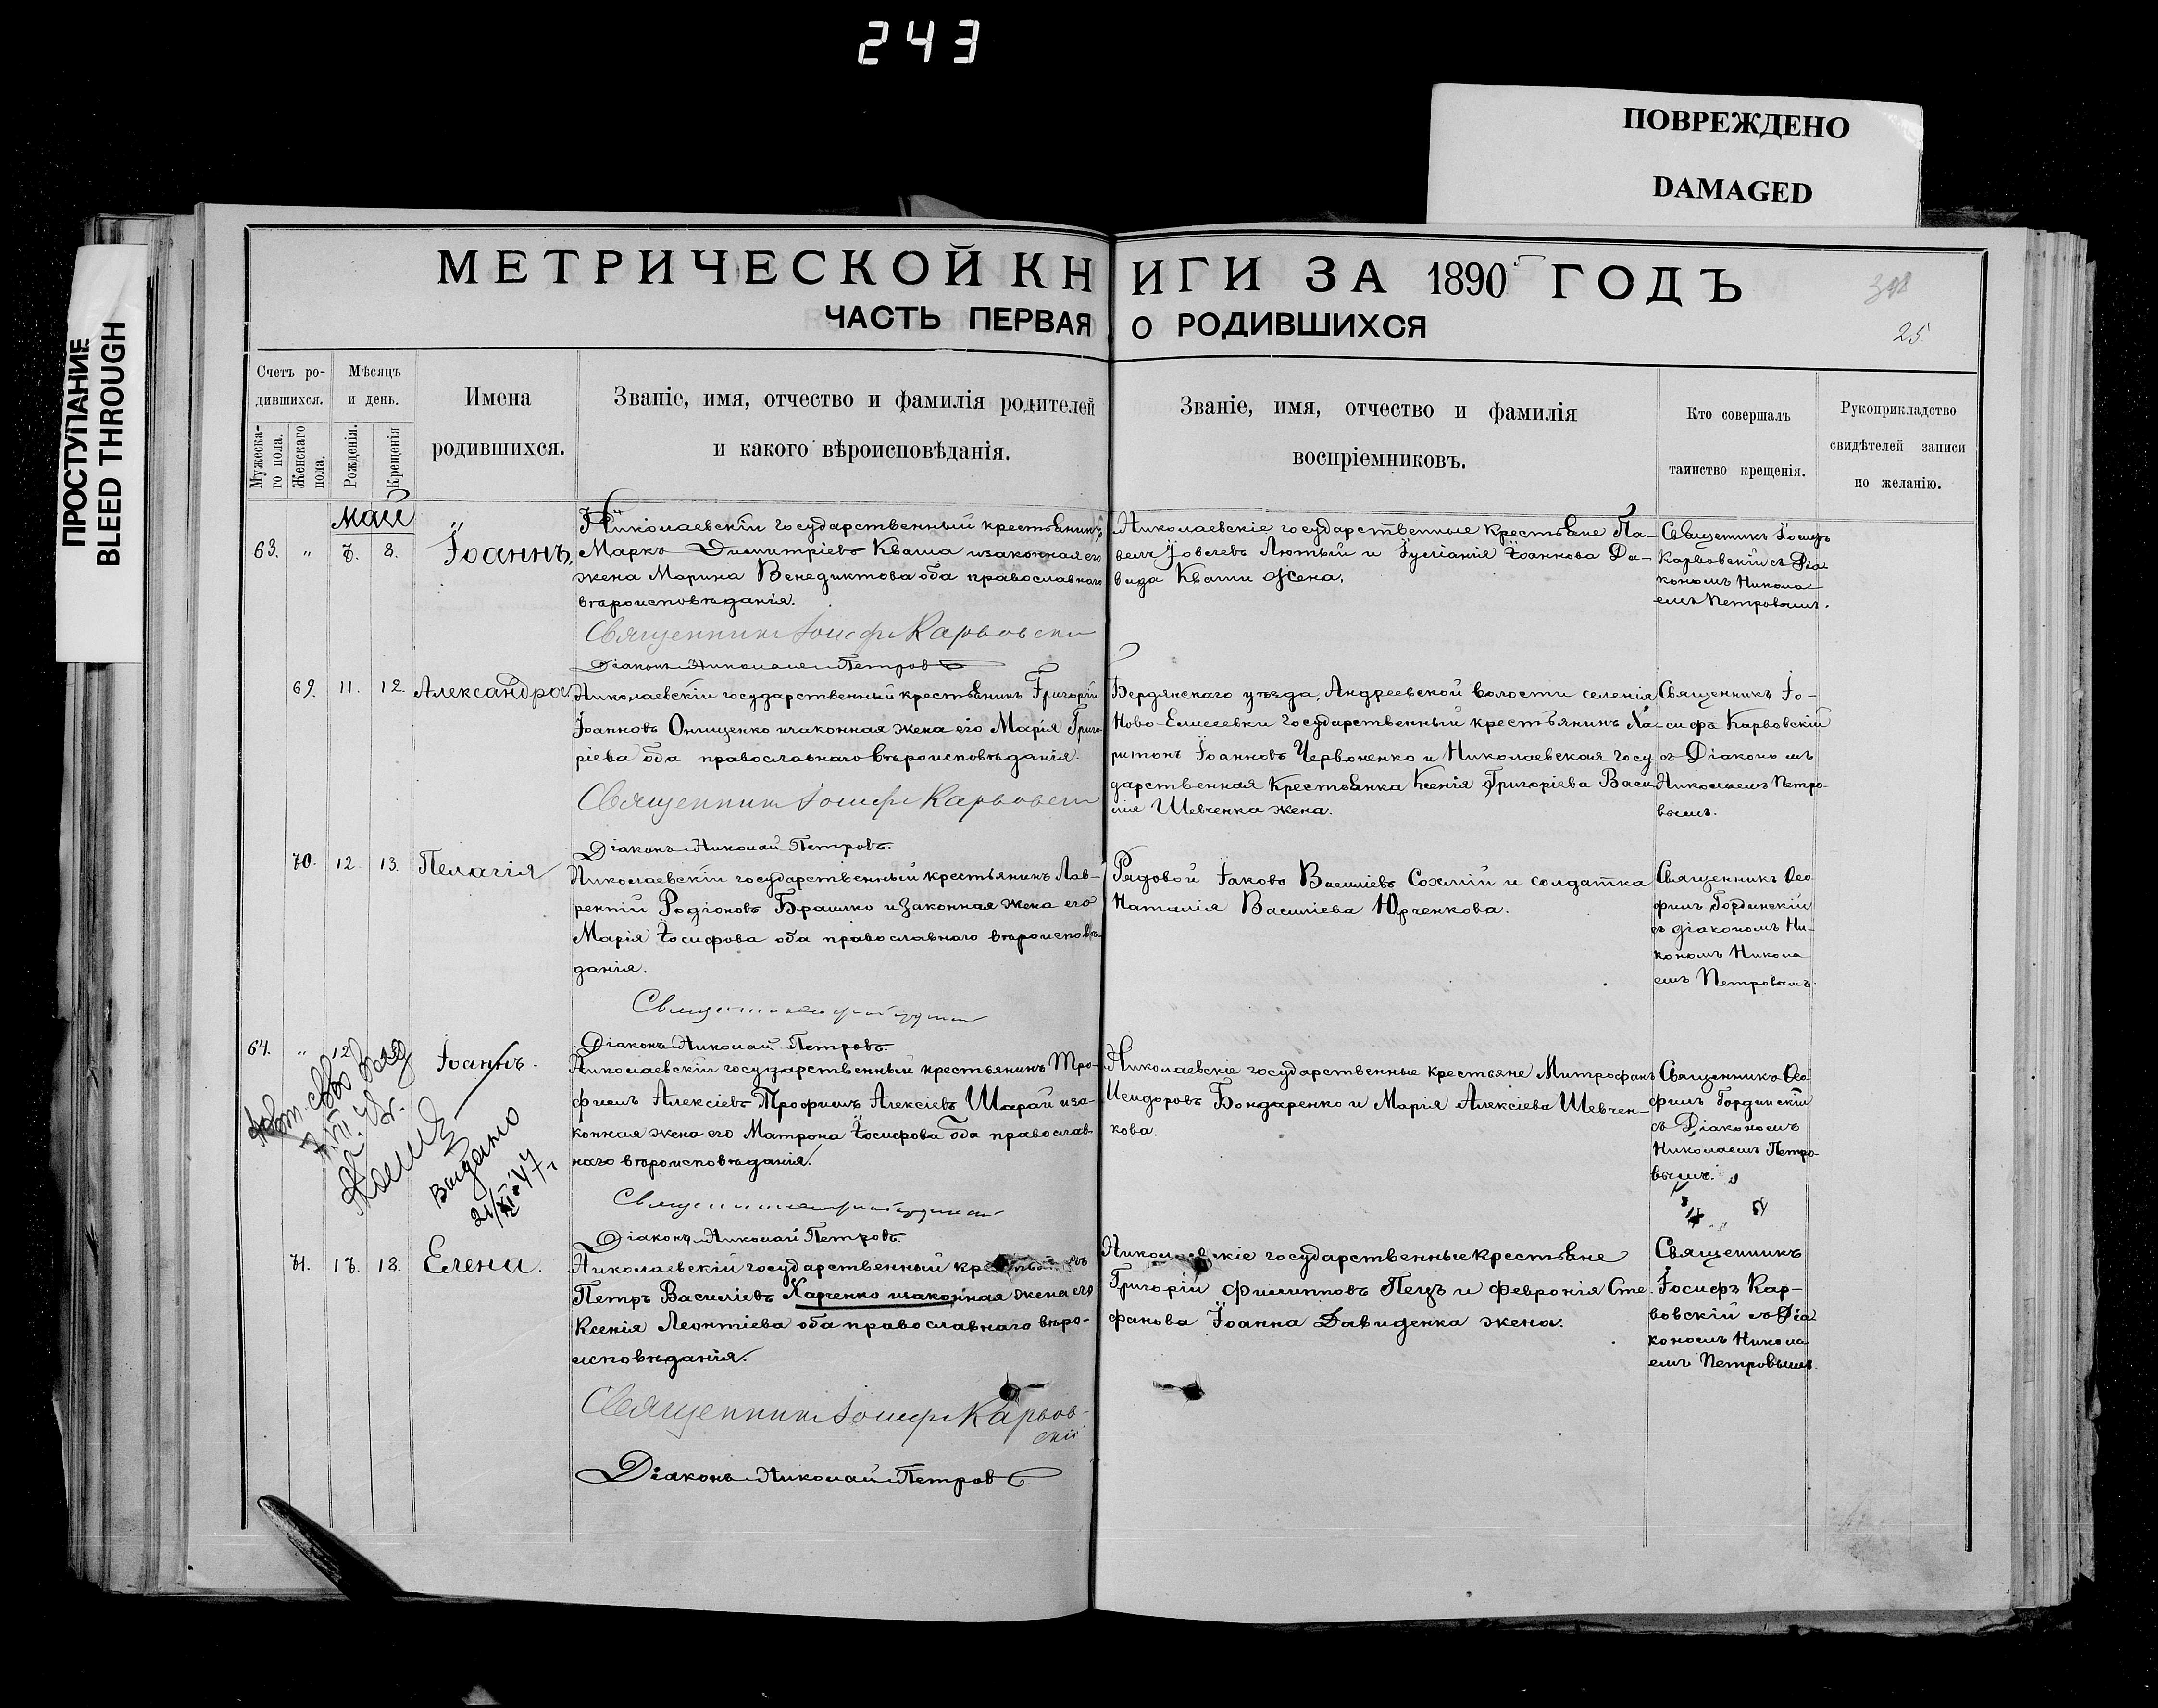 243
ПОВРЕЖДЕНО
DAMAGED
ПРОСТУПАНИЕ
BLEED THROUGH
МЕТРИЧЕСКОЙ КНИГИ ЗА 1890 ГОДЪ
ЧАСТЬ ПЕРВАЯ О РОДИВШИХСЯ
25
Счетъ ро-
дившихся.
Мужеска-
го пола.
Женскаго
пола.
Мѣсяцъ
и день.
Рожденія.
Крещенія
Имена
родившихся.
Званіе, имя, отчество и фамилія родителей
и какого вѣроисповѣданія.
Званіе, имя, отчество и фамилія
воспріемниковъ.
Кто совершалъ
таинство крещенія.
Рукоприкладство
свидѣтелей записи
по желанію.
Май
63. " 7. 8. Іоаннъ.
Николаевскій государственный крестьянинъ
Маркъ Димитріевъ Кваша и законная его
жена Марина Венедиктова оба православнаго
вѣроисповѣданія.
Священникъ Іосифъ Карвовскій
Діаконъ Николай Петровъ
Николаевскіе государственные крестьяне Па-
велъ Іовлевъ Лютый и Іуліанія Іоаннова Да-
вида Кваши жена.
Священникъ Іосифъ
Карвовскій съ Діа
кономъ Никола
емъ Петровымъ.
69. 11. 12. Александра
Николаевскій государственный крестьянинъ Григорій
Іоанновъ Онищенко и законная жена его Марія Григо
ріева оба православнаго вѣроисповѣданія.
Священникъ Іосифъ Карвовскій
Діаконъ Николай Петровъ.
Бердянскаго уѣзда, Андреевской волости селенія
Ново-Елисеевки государственный крестьянинъ Ха-
ритонъ Іоанновъ Червоненко и Николаевская госу
дарственная крестьянка Ксенія Григоріева Васи
лія Шевченка жена.
Священникъ Іо-
сифъ Карвовскій
съ Діакономъ
Николаемъ Петро-
вымъ.
70. 12. 13. Пелагія
Николаевскій государственный крестьянинъ Лав-
рентій Родіоновъ Брашко и законная жена его
Марія Іосифова оба православнаго вѣроисповѣ-
данія.
Діаконъ Николай Петровъ.
Рядовой Іаковъ Василіевъ Сохмій и солдатка
Наталія Василіева Юрченкова.
Священникъ Ѳео
филъ Гординскій
съ діакономъ Ни-
кономъ Никола
емъ Петровымъ.
64. " 12 Іоаннъ.
Николаевскій государственный крестьянинъ Тро-
фимъ Алексіевъ Трофимъ Алексіевъ Шарай и за-
конная жена его Матрона Іосифова оба православ-
наго вѣроисповѣданія.
Діаконъ Николай Петровъ.
Николаевскіе государственные крестьяне Митрофанъ
Исидоровъ Бондаренко и Марія Алексіева Шевчен-
кова.
Священникъ Ѳео
филъ Гординскій
съ Діакономъ
Николаемъ Петро-
вымъ.
выдано
21/XI-47
71. 17. 18. Елена.
Николаевскій государственный
Петръ Василіевъ Харченко и законная жена его
Ксенія Леонтіева оба православнаго вѣро-
исповѣданія.
Священникъ Іосифъ Карвов-
скій
Діаконъ Николай Петровъ
государственные крестьяне
Григорій Филипповъ Пецъ и Февронія Сте
фанова Іоанна Давиденка жена.
Священникъ
Іосифъ Кар-
вовскій съ Діа
кономъ Никола
емъ Петровымъ.